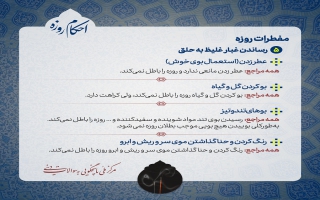 احکام روزه
مفطرات روزه
۵ رساندن غبار غلیظ به حلق
عطر زدن (استعمال بوی خوش)
همه مراجع: عطر زدن مانعی ندارد و روزه را باطل نمی‌کند.
بو کردن گل و گیاه
همه مراجع: بو کردن گل و گیاه روزه را باطل نمی‌کند، ولی کراهت دارد.
بوهای تند و تیز
همه مراجع: رسیدن بوی تند مواد شوینده و سفیدکننده و ... روزه را باطل نمی‌کند.
به‌طور کلی بوییدن هیچ بویی موجب بطلان روزه نمی‌شود.
رنگ کردن و حنا گذاشتن موی سر و ریش و ابرو
همه مراجع: رنگ کردن و حنا گذاشتن موی سر و ریش و ابرو روزه را باطل نمی‌کند.
مرکز ملی پاسخگویی به سوالات دینی